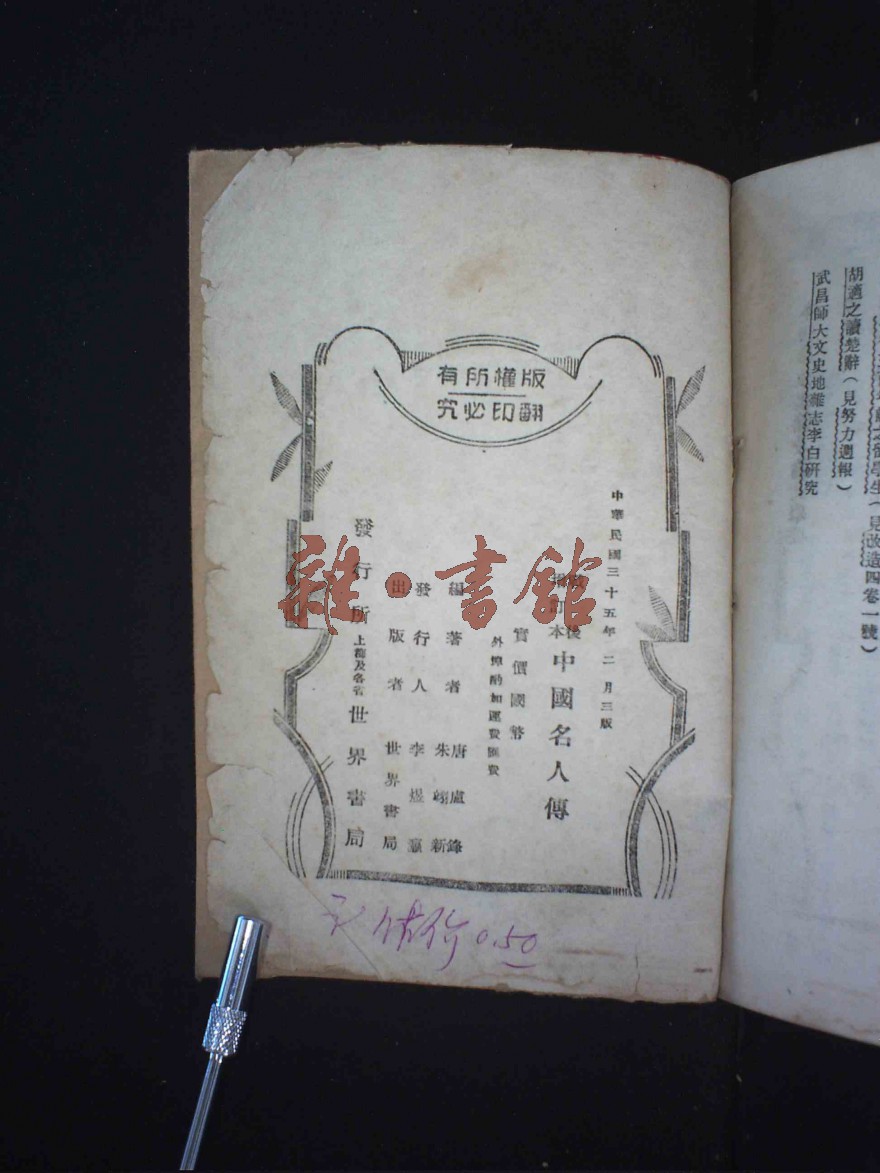 版權所有
翻印必究
中華民國三十五年二月三版
戰後增訂本 中國名人傳
實價國幣
外埠酌加運費匯費
編著者 唐盧鋒 朱翊新
發行人 李煜瀛
出版者 世界書局
發行所 上海及各省 世界書局
雜·書館
估价0.50
(見改造四卷一號)
胡適之讀楚辭(見努力週報)
武昌師大文史地雜志李白研究